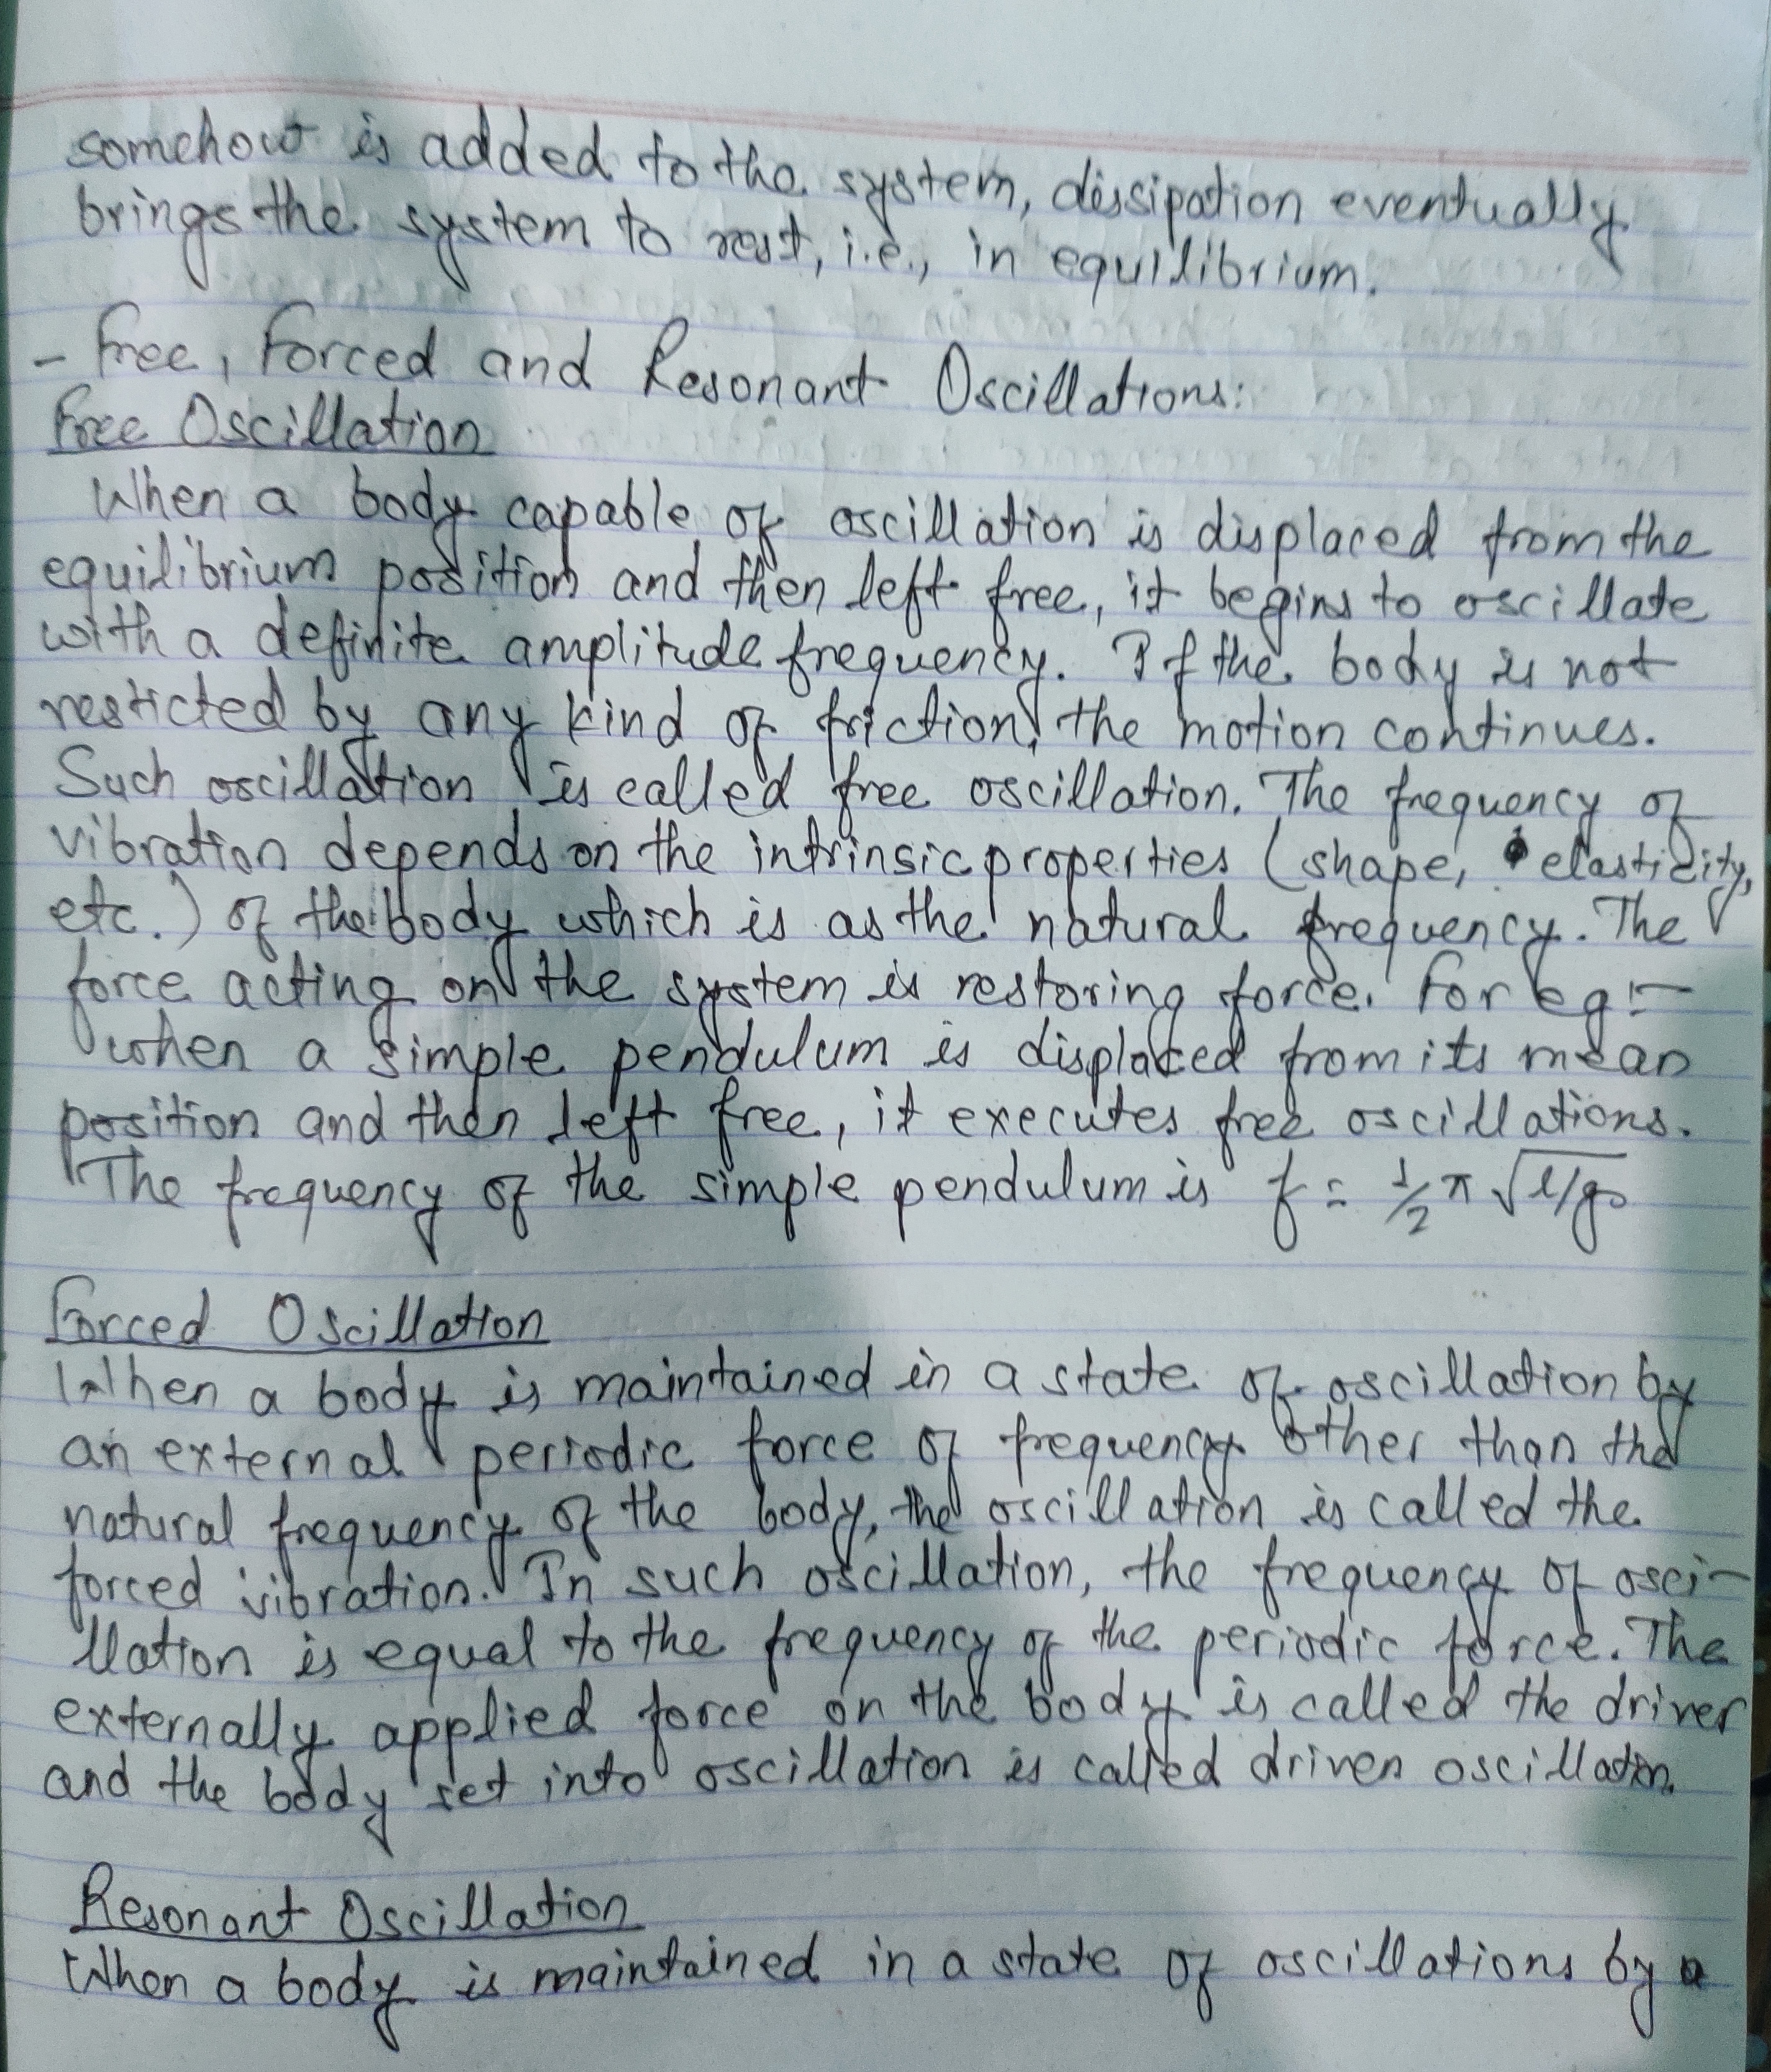 somehow is added to the system, dissipation eventually
brings the system to rest, i.e., in equilibrium.
- Free, Forced and Resonant Oscillations:
Free Oscillation
When a body capable of oscillation is displaced from the
equilibrium position and then left free, it begins to oscillate
with a definite amplitude frequency. If the body is not
resticted by any kind of friction, the motion continues.
Such oscillation is called free oscillation. The frequency of
vibration depends on the intrinsic properties (shape, elasticity,
etc.) of the body which is as the natural frequency. The
force acting on the system is restoring force. For eg:-
when a simple pendulum is displaced from its mean
position and then left free, it executes free oscillations.
The frequency of the simple pendulum is f = 1/2 π √l/g
Forced Oscillation
When a body is maintained in a state of oscillation by
an external periodic force of frequency other than the
natural frequency of the body, the oscillation is called the
forced vibration. In such oscillation, the frequency of osci-
llation is equal to the frequency of the periodic force. The
externally applied force on the body is called the driver
and the body set into oscillation is called driven oscillation.
Resonant Oscillation
When a body is maintained in a state of oscillations by a